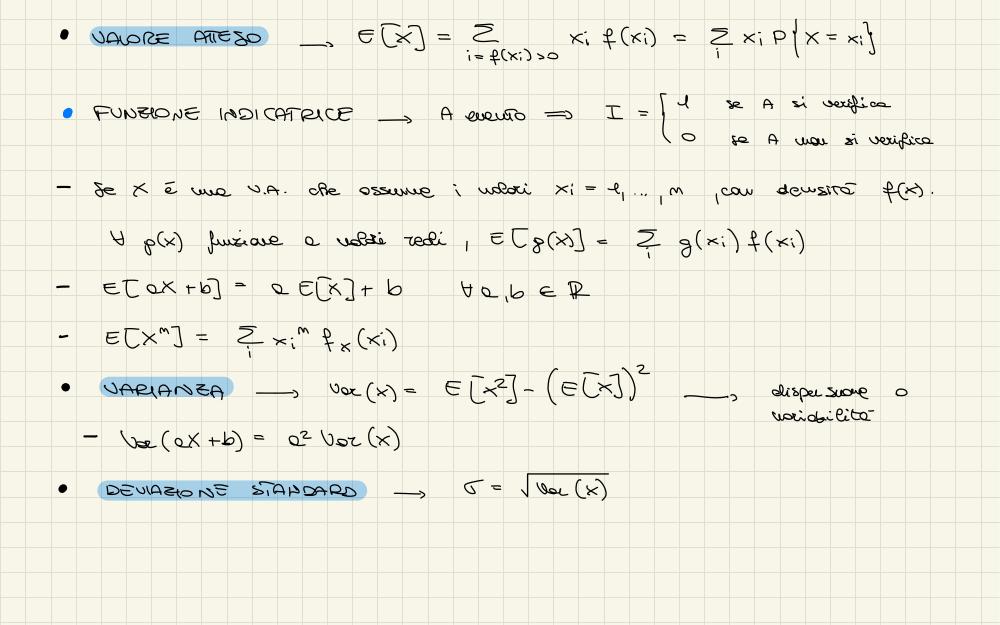 • VALORE ATTESO → E[X] = Σ xi f(xi) = Σ xi P{X = xi}
i = f(xi) > 0 i
• FUNZIONE INDICATRICE → A evento ⇒ I = { 1 se A si verifica
0 se A non si verifica
– Se X è una V.A. che assume i valori xi = 1, ..., n, con densità f(x).
∀ g(x) funzione a valori reali, E[g(x)] = Σ g(xi) f(xi)
i
– E[aX + b] = a E[X] + b ∀ a, b ∈ ℝ
– E[Xⁿ] = Σ xiⁿ fx(xi)
i
• VARIANZA → Var(x) = E[x²] - (E[X])² → dispersione o
variabilità
– Var(aX + b) = a² Var(x)
• DEVIAZIONE STANDARD → σ = √Var(x)